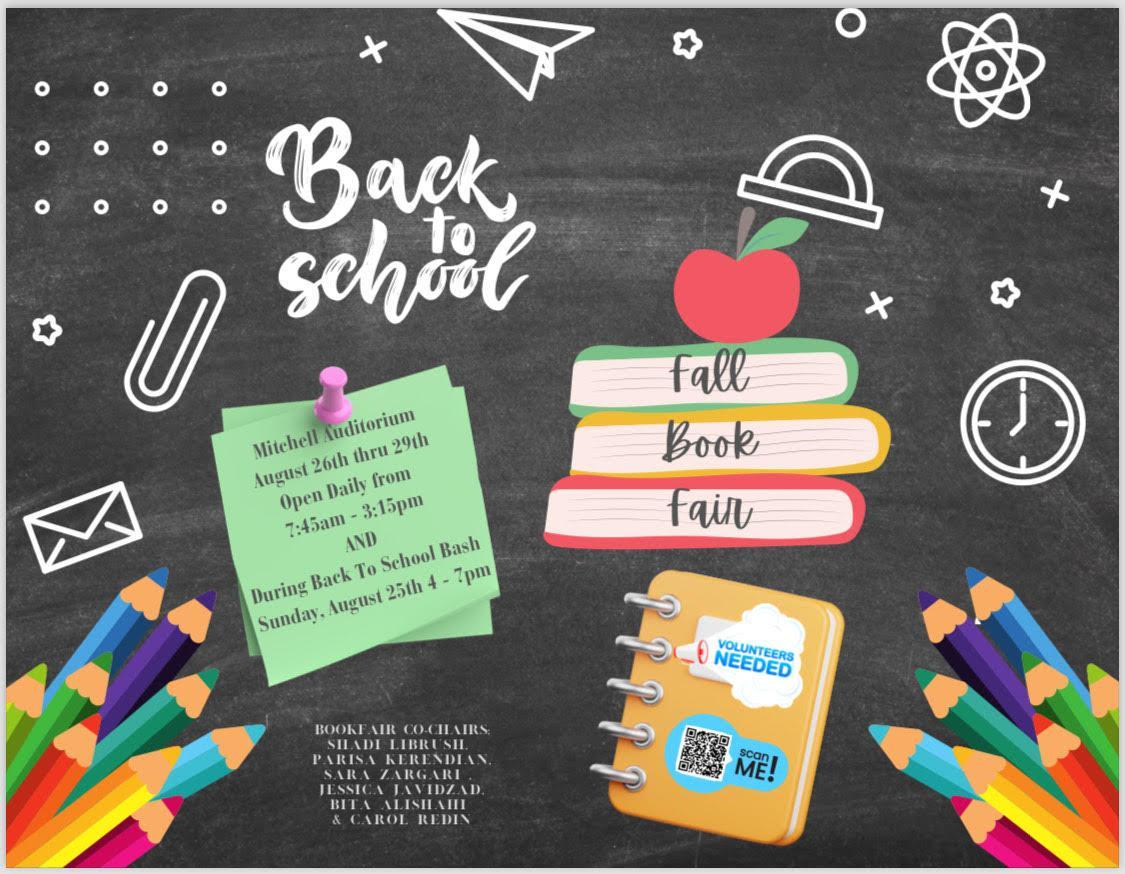 Back
to
school
Fall
Book
Fair
Mitchell Auditorium
August 26th thru 29th
Open Daily from
7:45am - 3:15pm
AND
During Back To School Bash
Sunday, August 25th 4 - 7pm
VOLUNTEERS
NEEDED
scan
ME!
BOOKFAIR CO-CHAIRS:
SHADI LIBRUSH,
PARISA KERENDIAN,
SARA ZARGARI ,
JESSICA JAVIDZAD,
BITA ALISHAHI
& CAROL REDIN